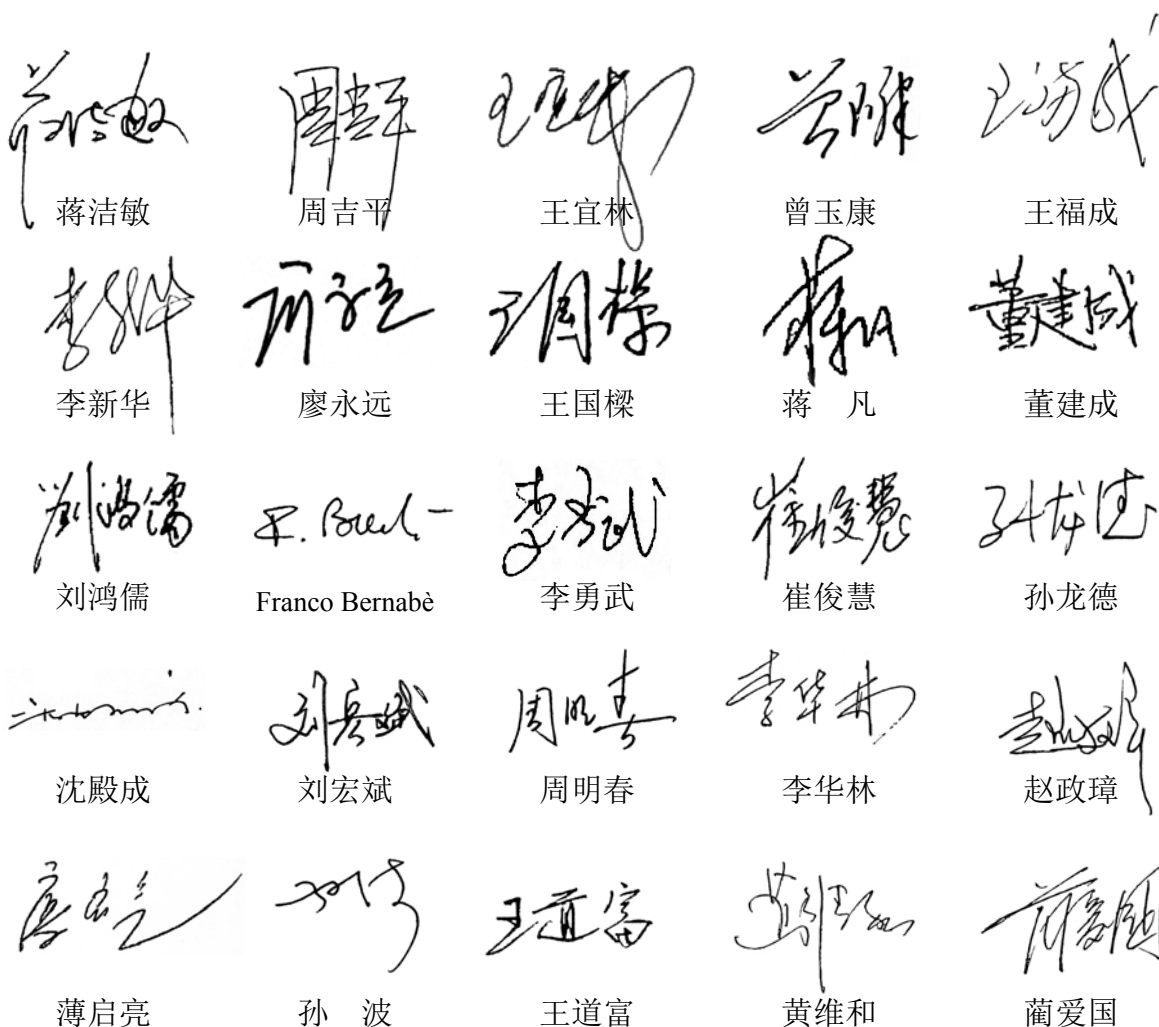 蒋洁敏 周吉平 王宜林 曾玉康 王福成
李新华 廖永远 王国樑 蒋 凡 董建成
刘鸿儒 Franco Bernabè 李勇武 崔俊慧 孙龙德
沈殿成 刘宏斌 周明春 李华林 赵政璋
薄启亮 孙 波 王道富 黄维和 蔺爱国